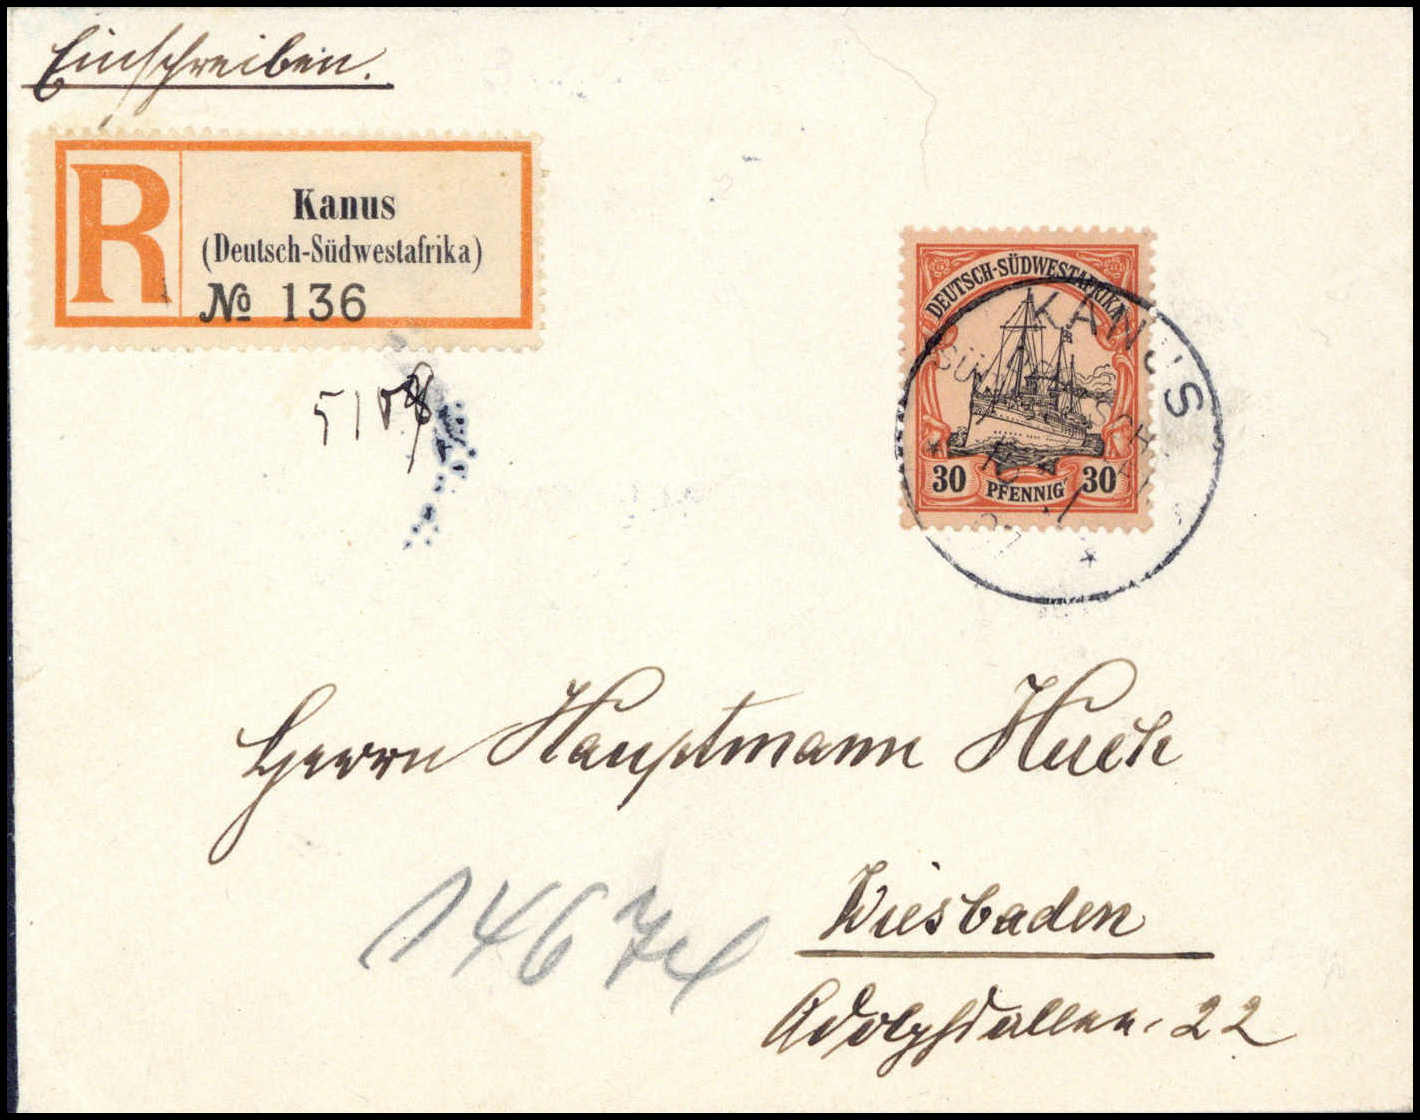 Einschreiben.
R
Kanus
(Deutsch-Südwestafrika)
№ 136
DEUTSCH-SÜDWESTAFRIKA
KANUS
30 PFENNIG 30
Herrn Hauptmann Hueck
Wiesbaden
Adolphsallee 22